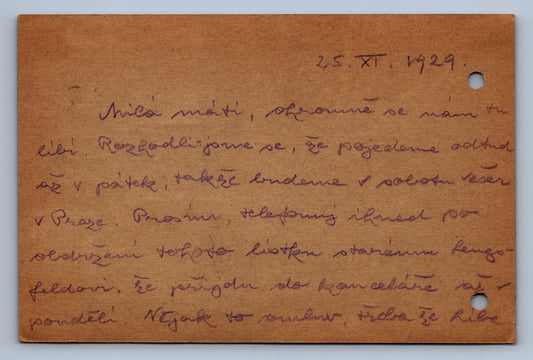 25. XI. 1929.
Milá máti, ohromně se nám tu
líbí. Rozhodli jsme se, že pojedeme odtud
až v pátek, takže budeme v sobotu večer
v Praze. Prosím, telefonuj ihned po
obdržení tohoto lístku starému Lengs-
feldovi, že přijdu do kanceláře až v
pondělí. Nějak to omluv třeba že